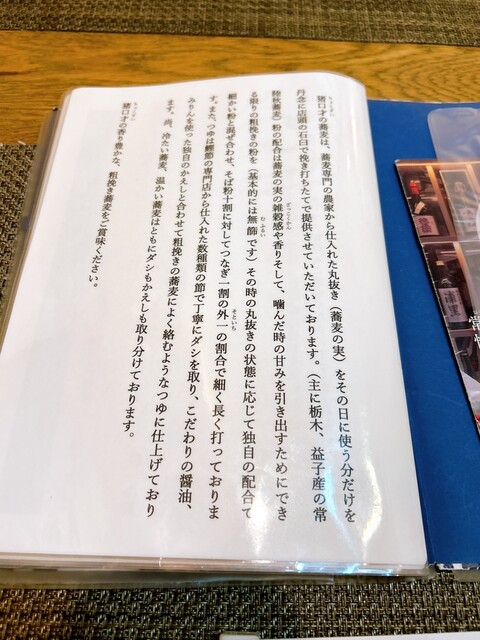 猪口才の蕎麦は、蕎麦専門の農家から仕入れた丸抜き（蕎麦の実）をその日に使う分だけを
丹念に店頭の石臼で挽き打ちたてで提供させていただいております。（主に栃木、益子産の常
陸秋蕎麦）粉の配合は蕎麦の実の雑穀感や香りそして、噛んだ時の甘みを引き出すためにでき
る限りの粗挽きの粉を（基本的には無篩です）その時の丸抜きの状態に応じて独自の配合で
細かい粉と混ぜ合わせ、そば粉十割に対してつなぎ一割の外一の割合で細く長く打っておりま
す。また、つゆは鰹節の専門店から仕入れた数種類の節で丁寧にダシを取り、こだわりの醤油、
みりんを使った独自のかえしと合わせて粗挽きの蕎麦によく絡むようなつゆに仕上げており
ます。尚、冷たい蕎麦、温かい蕎麦はともにダシもかえしも取り分けております。
猪口才の香り豊かな、粗挽き蕎麦をご賞味ください。